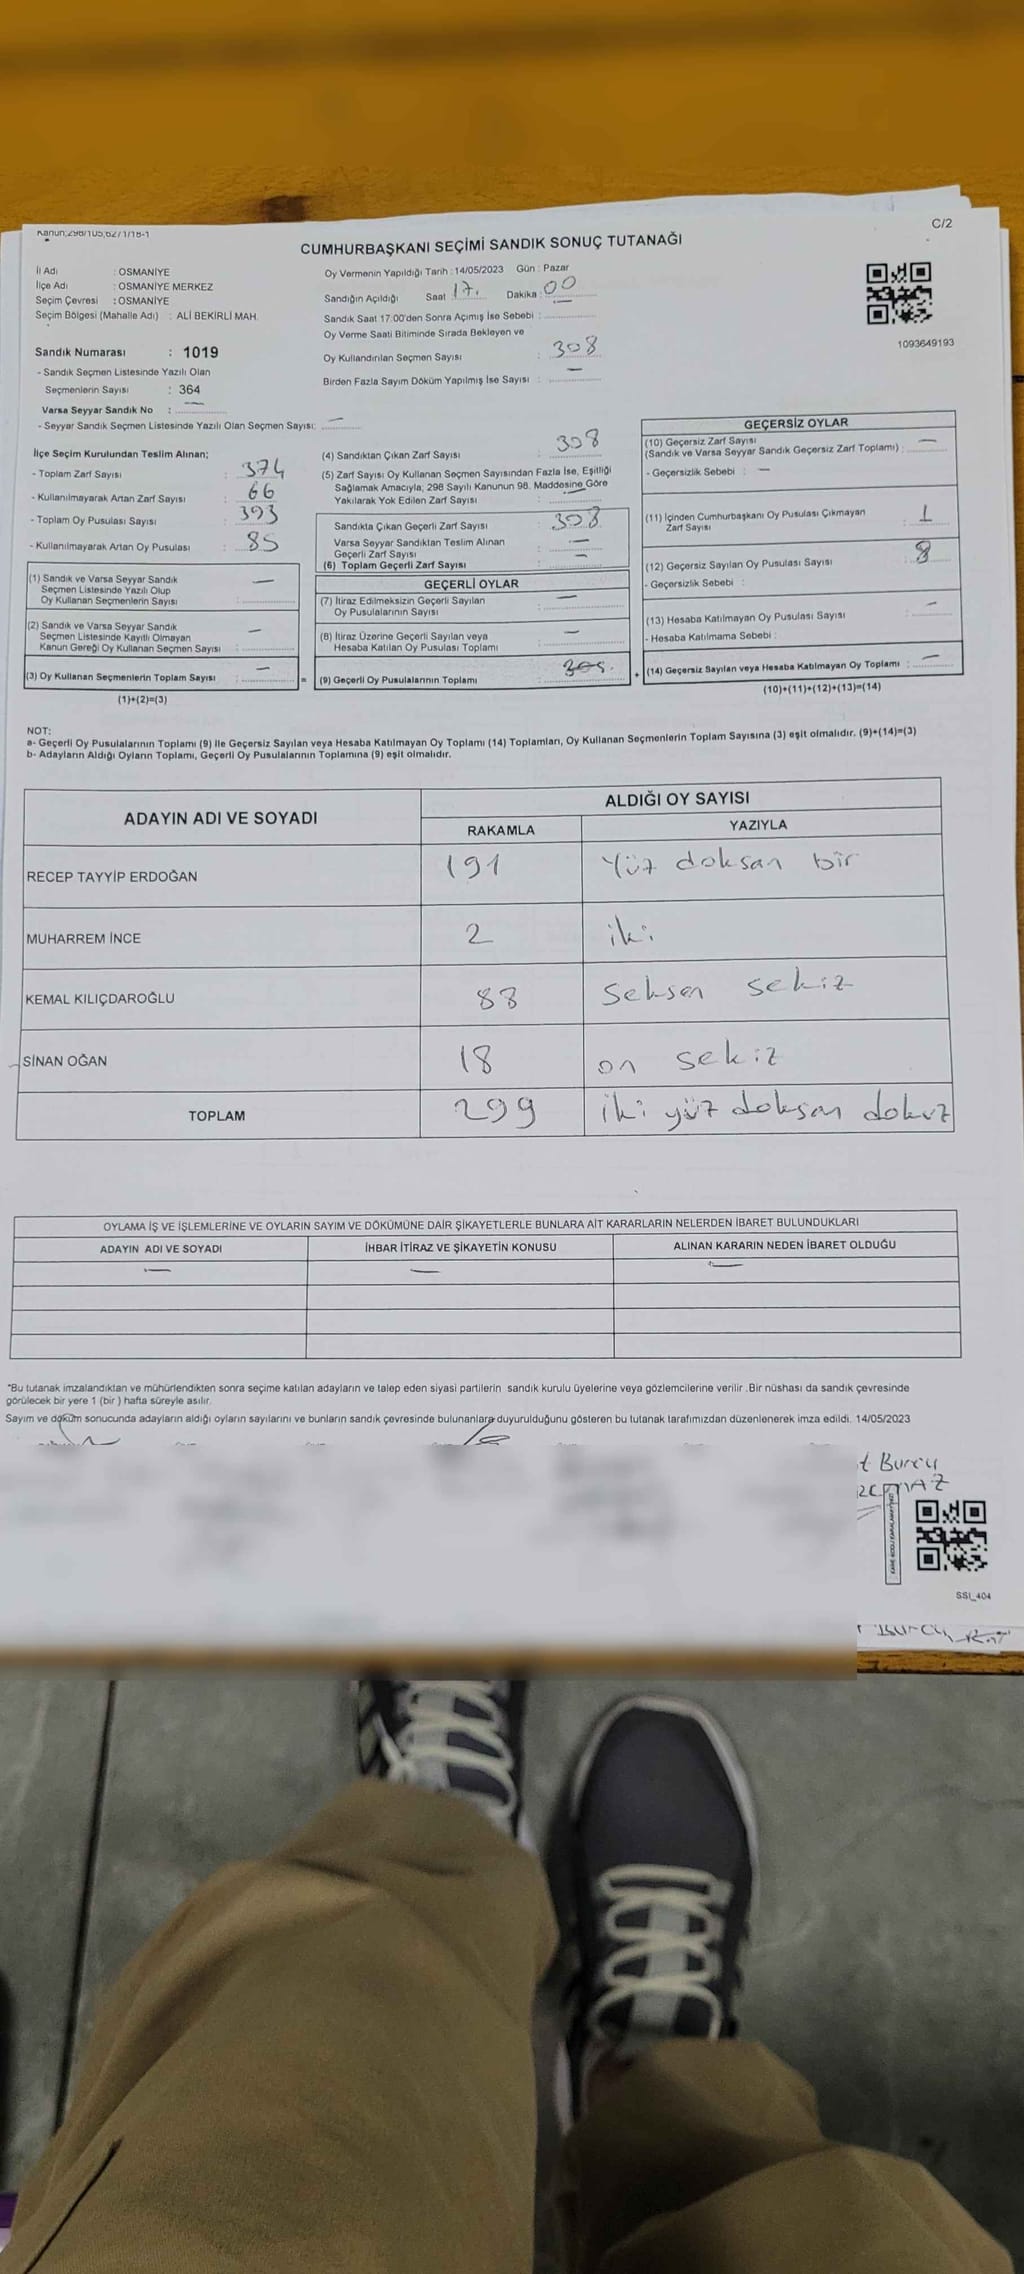 Kanun:298/105,6271/18-1
C/2
CUMHURBAŞKANI SEÇİMİ SANDIK SONUÇ TUTANAĞI
İl Adı : OSMANİYE
İlçe Adı : OSMANİYE MERKEZ
Seçim Çevresi : OSMANİYE
Seçim Bölgesi (Mahalle Adı) : ALİ BEKİRLİ MAH.
Sandık Numarası : 1019
- Sandık Seçmen Listesinde Yazılı Olan
Seçmenlerin Sayısı : 364
Varsa Seyyar Sandık No : —
- Seyyar Sandık Seçmen Listesinde Yazılı Olan Seçmen Sayısı: —
Oy Vermenin Yapıldığı Tarih : 14/05/2023 Gün : Pazar
Sandığın Açıldığı Saat 17. Dakika : 00
Sandık Saat 17:00'den Sonra Açımış İse Sebebi : —
Oy Verme Saati Bitiminde Sırada Bekleyen ve
Oy Kullandırılan Seçmen Sayısı : 308
Birden Fazla Sayım Döküm Yapılmış İse Sayısı : —
1093649193
İlçe Seçim Kurulundan Teslim Alınan;
- Toplam Zarf Sayısı : 374
- Kullanılmayarak Artan Zarf Sayısı : 66
- Toplam Oy Pusulası Sayısı : 393
- Kullanılmayarak Artan Oy Pusulası : 85
(1) Sandık ve Varsa Seyyar Sandık
Seçmen Listesinde Yazılı Olup
Oy Kullanan Seçmenlerin Sayısı : —
(2) Sandık ve Varsa Seyyar Sandık
Seçmen Listesinde Kayıtlı Olmayan
Kanun Gereği Oy Kullanan Seçmen Sayısı : —
(3) Oy Kullanan Seçmenlerin Toplam Sayısı : —
(1)+(2)=(3)
(4) Sandıktan Çıkan Zarf Sayısı : 308
(5) Zarf Sayısı Oy Kullanan Seçmen Sayısından Fazla İse, Eşitliği
Sağlamak Amacıyla; 298 Sayılı Kanunun 98. Maddesine Göre
Yakılarak Yok Edilen Zarf Sayısı : —
Sandıkta Çıkan Geçerli Zarf Sayısı : 308
Varsa Seyyar Sandıktan Teslim Alınan
Geçerli Zarf Sayısı : —
(6) Toplam Geçerli Zarf Sayısı : —
GEÇERLİ OYLAR
(7) İtiraz Edilmeksizin Geçerli Sayılan
Oy Pusulalarının Sayısı : —
(8) İtiraz Üzerine Geçerli Sayılan veya
Hesaba Katılan Oy Pusulası Toplamı : —
(9) Geçerli Oy Pusulalarının Toplamı :
= +
GEÇERSİZ OYLAR
(10) Geçersiz Zarf Sayısı
(Sandık ve Varsa Seyyar Sandık Geçersiz Zarf Toplamı) : —
- Geçersizlik Sebebi : —
(11) İçinden Cumhurbaşkanı Oy Pusulası Çıkmayan
Zarf Sayısı : 1
(12) Geçersiz Sayılan Oy Pusulası Sayısı : 8
- Geçersizlik Sebebi :
(13) Hesaba Katılmayan Oy Pusulası Sayısı : —
- Hesaba Katılmama Sebebi :
(14) Geçersiz Sayılan veya Hesaba Katılmayan Oy Toplamı : —
(10)+(11)+(12)+(13)=(14)
NOT:
a- Geçerli Oy Pusulalarının Toplamı (9) ile Geçersiz Sayılan veya Hesaba Katılmayan Oy Toplamı (14) Toplamları, Oy Kullanan Seçmenlerin Toplam Sayısına (3) eşit olmalıdır. (9)+(14)=(3)
b- Adayların Aldığı Oyların Toplamı, Geçerli Oy Pusulalarının Toplamına (9) eşit olmalıdır.
ADAYIN ADI VE SOYADI ALDIĞI OY SAYISI
RAKAMLA YAZIYLA
RECEP TAYYİP ERDOĞAN 191 Yüz doksan bir
MUHARREM İNCE 2 iki
KEMAL KILIÇDAROĞLU 88 Seksen sekiz
SİNAN OĞAN 18 on sekiz
TOPLAM 299 iki yüz doksan dokuz
OYLAMA İŞ VE İŞLEMLERİNE VE OYLARIN SAYIM VE DÖKÜMÜNE DAİR ŞİKAYETLERLE BUNLARA AİT KARARLARIN NELERDEN İBARET BULUNDUKLARI
ADAYIN ADI VE SOYADI İHBAR İTİRAZ VE ŞİKAYETİN KONUSU ALINAN KARARIN NEDEN İBARET OLDUĞU
— — —
*Bu tutanak imzalandıktan ve mühürlendikten sonra seçime katılan adayların ve talep eden siyasi partilerin sandık kurulu üyelerine veya gözlemcilerine verilir .Bir nüshası da sandık çevresinde
görülecek bir yere 1 (bir ) hafta süreyle asılır.
Sayım ve döküm sonucunda adayların aldığı oyların sayılarını ve bunların sandık çevresinde bulunanlara duyurulduğunu gösteren bu tutanak tarafımızdan düzenlenerek imza edildi. 14/05/2023
Burcu
SSI_404